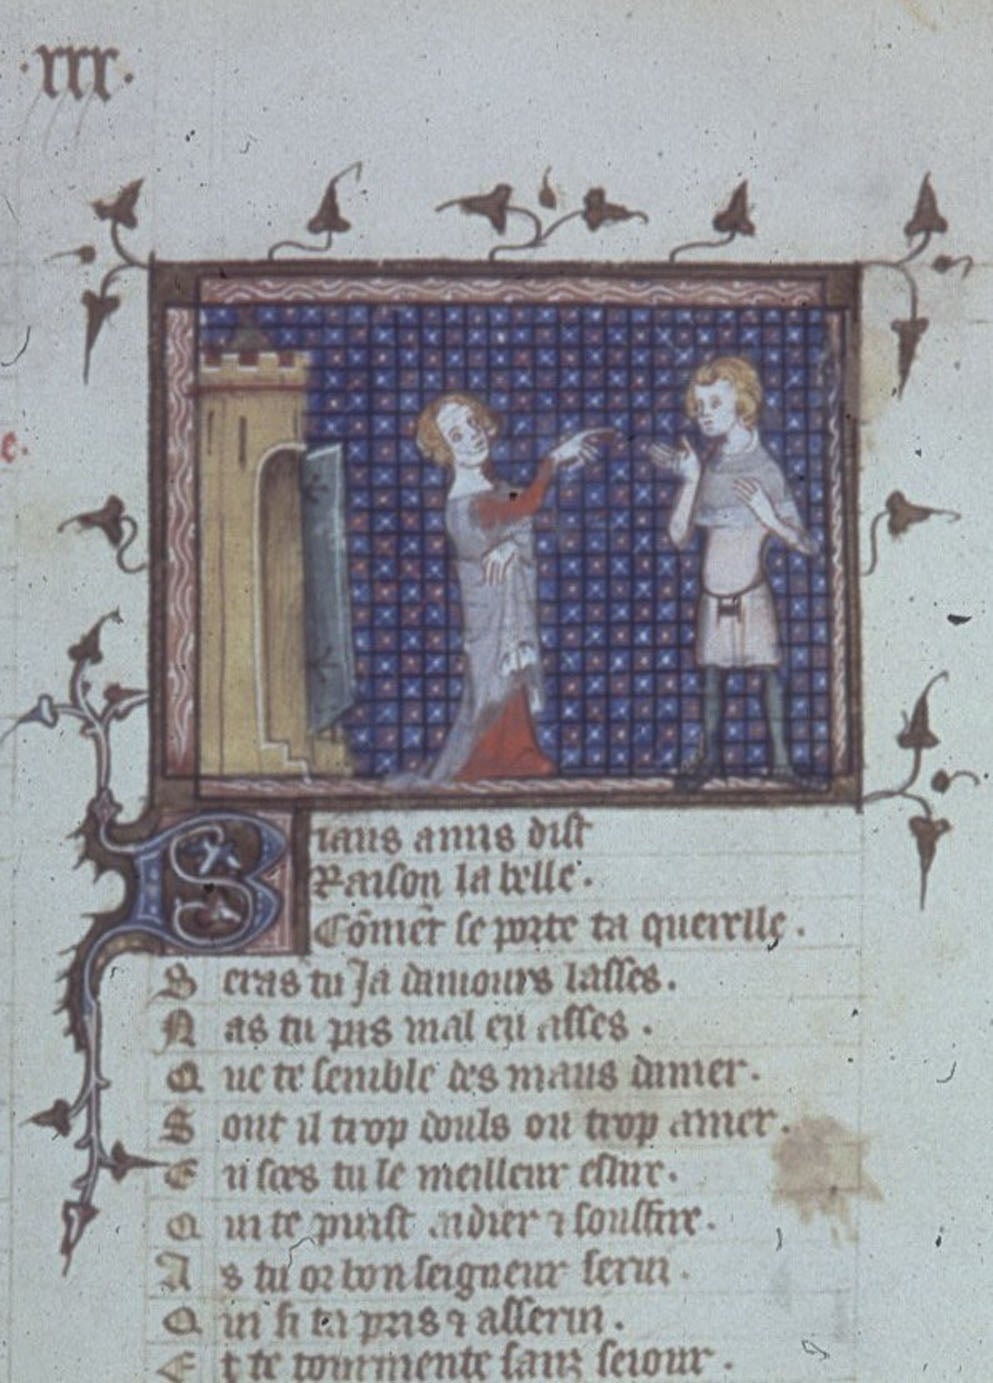 .xxx.
e.
Biaus amis dist
Raison la belle.
Cōmēt se porte ta querelle.
Seras tu ja damours lasses.
Nas tu pas mal eu asses.
Que te semble des maus damer.
Sont il trop douls ou trop amer.
En sces tu le meilleur eslire.
Qui te puist aidier ⁊ souffire.
As tu or bon seigneur serui.
Qui si ta pris ⁊ asserui.
Et te tourmente sanz seiour.